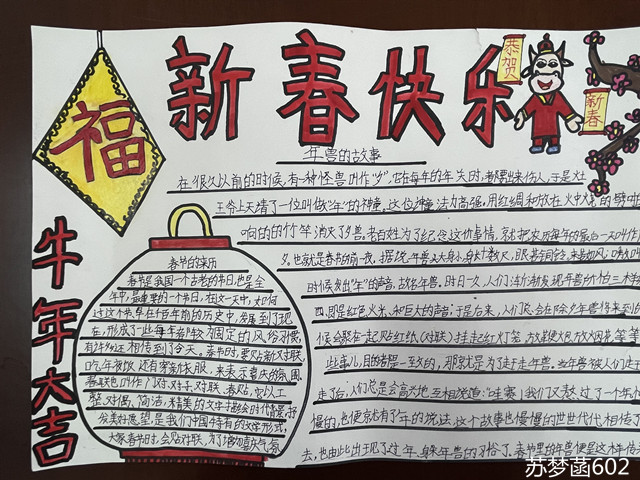 新春快乐
恭贺
新春
福
牛年大吉
年兽的故事
在很久以前的时候,有一种怪兽叫作"夕",它在每年的年关时,都要出来伤人,于是灶
王爷上天请了一位叫做"年"的神童,这位神童法力高强,用红绸和放在火中
响的的竹竿消灭了夕兽,老百姓为了纪念这件事情,就把农历每年的最后一天叫作
夕,也就是春节的前一夜,据说,年兽
时候发出"年"的声音,故名年兽,时日一久,人们渐渐发现年兽所怕的三样
四,即是红色火光,和巨大的声音,于是后来,人们总会在除夕年兽将来到
候会聚在一起贴红纸(对联)挂起红灯笼,放鞭炮放烟花等等
些事儿,目的都是一致的,那就是为了赶走年兽。当年兽被人们赶
走了后,人们总是会高兴地互相说道:
慢的,也便就有了年的说法,这个故事也慢慢的世世代代相传了
去,也由此出现了过年
春节的来历
春节是我国一个古老的节日,也是全
年中最重要的一个节日,在这一天中,如何
过这个节早在千百年前的历史中,发展到了现
在,形成了一些每年都较为固定的风俗习惯,
有许多还相传到了今天。春节时,要贴新对联,
吃年夜饭还有剪新衣服,来表示喜庆的氛围。
春联也叫作门对、对子、对联、春贴,它以工
整、对偶、简洁、精美的文字描绘时代背景,抒
发美好愿望,是我们中国特有的文学形式,
大家春节时,会贴对联,为了增加喜庆气氛
苏梦菡602